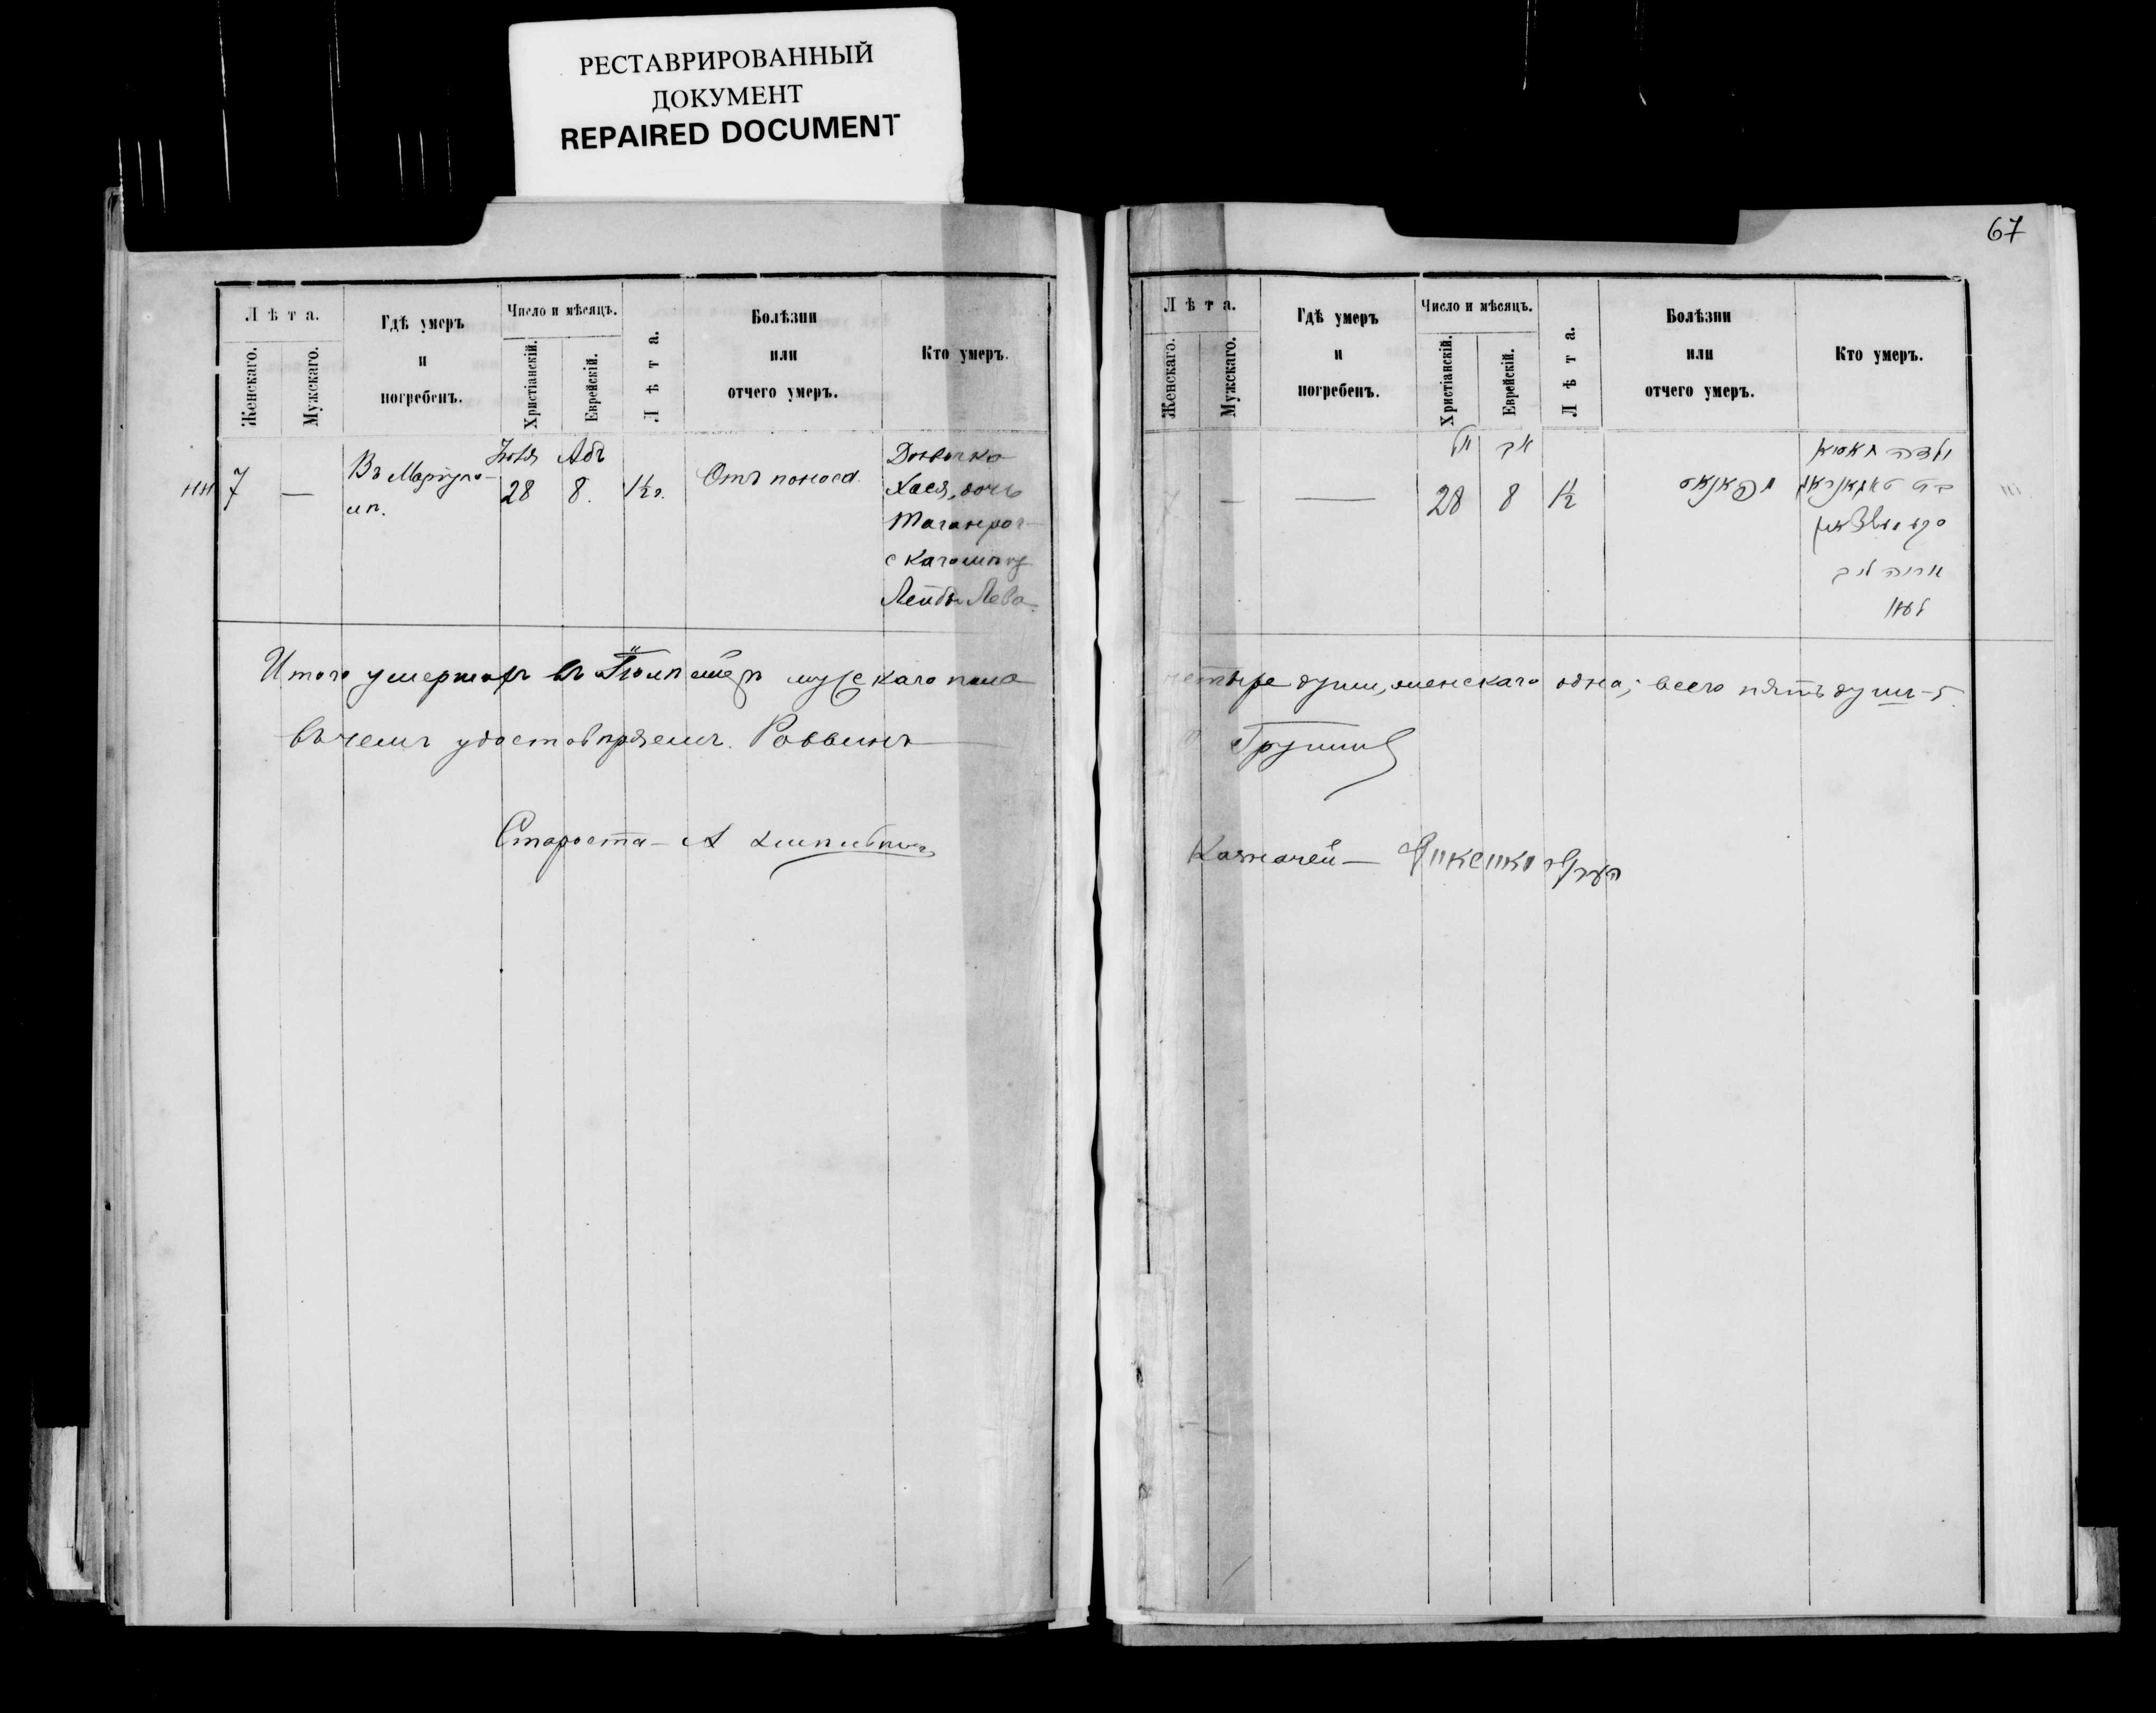 РЕСТАВРИРОВАННЫЙ
ДОКУМЕНТ
REPAIRED DOCUMENT
Лѣта.
Женскаго.
Мужскаго.
Гдѣ умеръ
и
погребенъ.
Число и мѣсяцъ.
Христіанскій.
Еврейскій.
Лѣта.
Болѣзни
или
отчего умеръ.
Кто умеръ.
7
—
Въ Маріупо-
лп.
Іюля
28
Абъ
8.
1½ г.
Отъ поноса
Дѣвочка
Хася, дочь
Таганрог-
скаго
Лейбы Лева
Итого умершихъ въ Іюлѣ мужскаго пола
въ чемъ удостовѣряемъ. Раввинъ
Староста — А
67
Лѣта.
Женскаго.
Мужскаго.
Гдѣ умеръ
и
погребенъ.
Число и мѣсяцъ.
Христіанскій.
Еврейскій.
Лѣта.
Болѣзни
или
отчего умеръ.
Кто умеръ.
7
—
—
28
אב
8
1½
ילדה
בת
אריה ליב
четыре души, женскаго одна; всего пять душъ - 5.
Казначей —